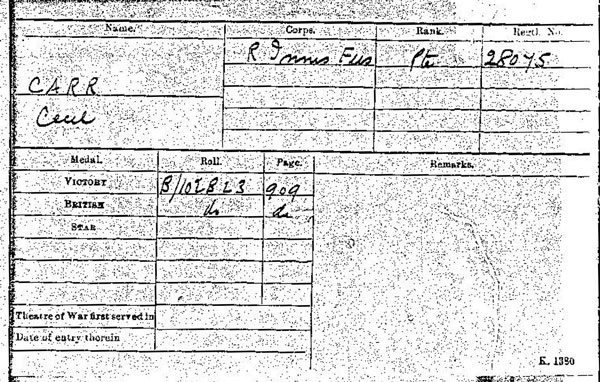 Name. Corps. Rank. Regtl. No.
R Innis Fus Pte 28045
CARR
Cecil
Medal. Roll. Page. Remarks.
VICTORY B/102B23 909
BRITISH do do
STAR
Theatre of War first served in
Date of entry therein
K. 1380